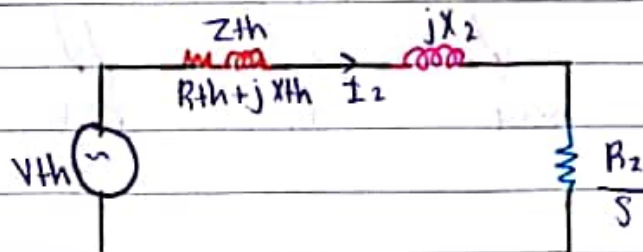 Zth
jX2
Rth+jXth
I2
Vth
R2
S